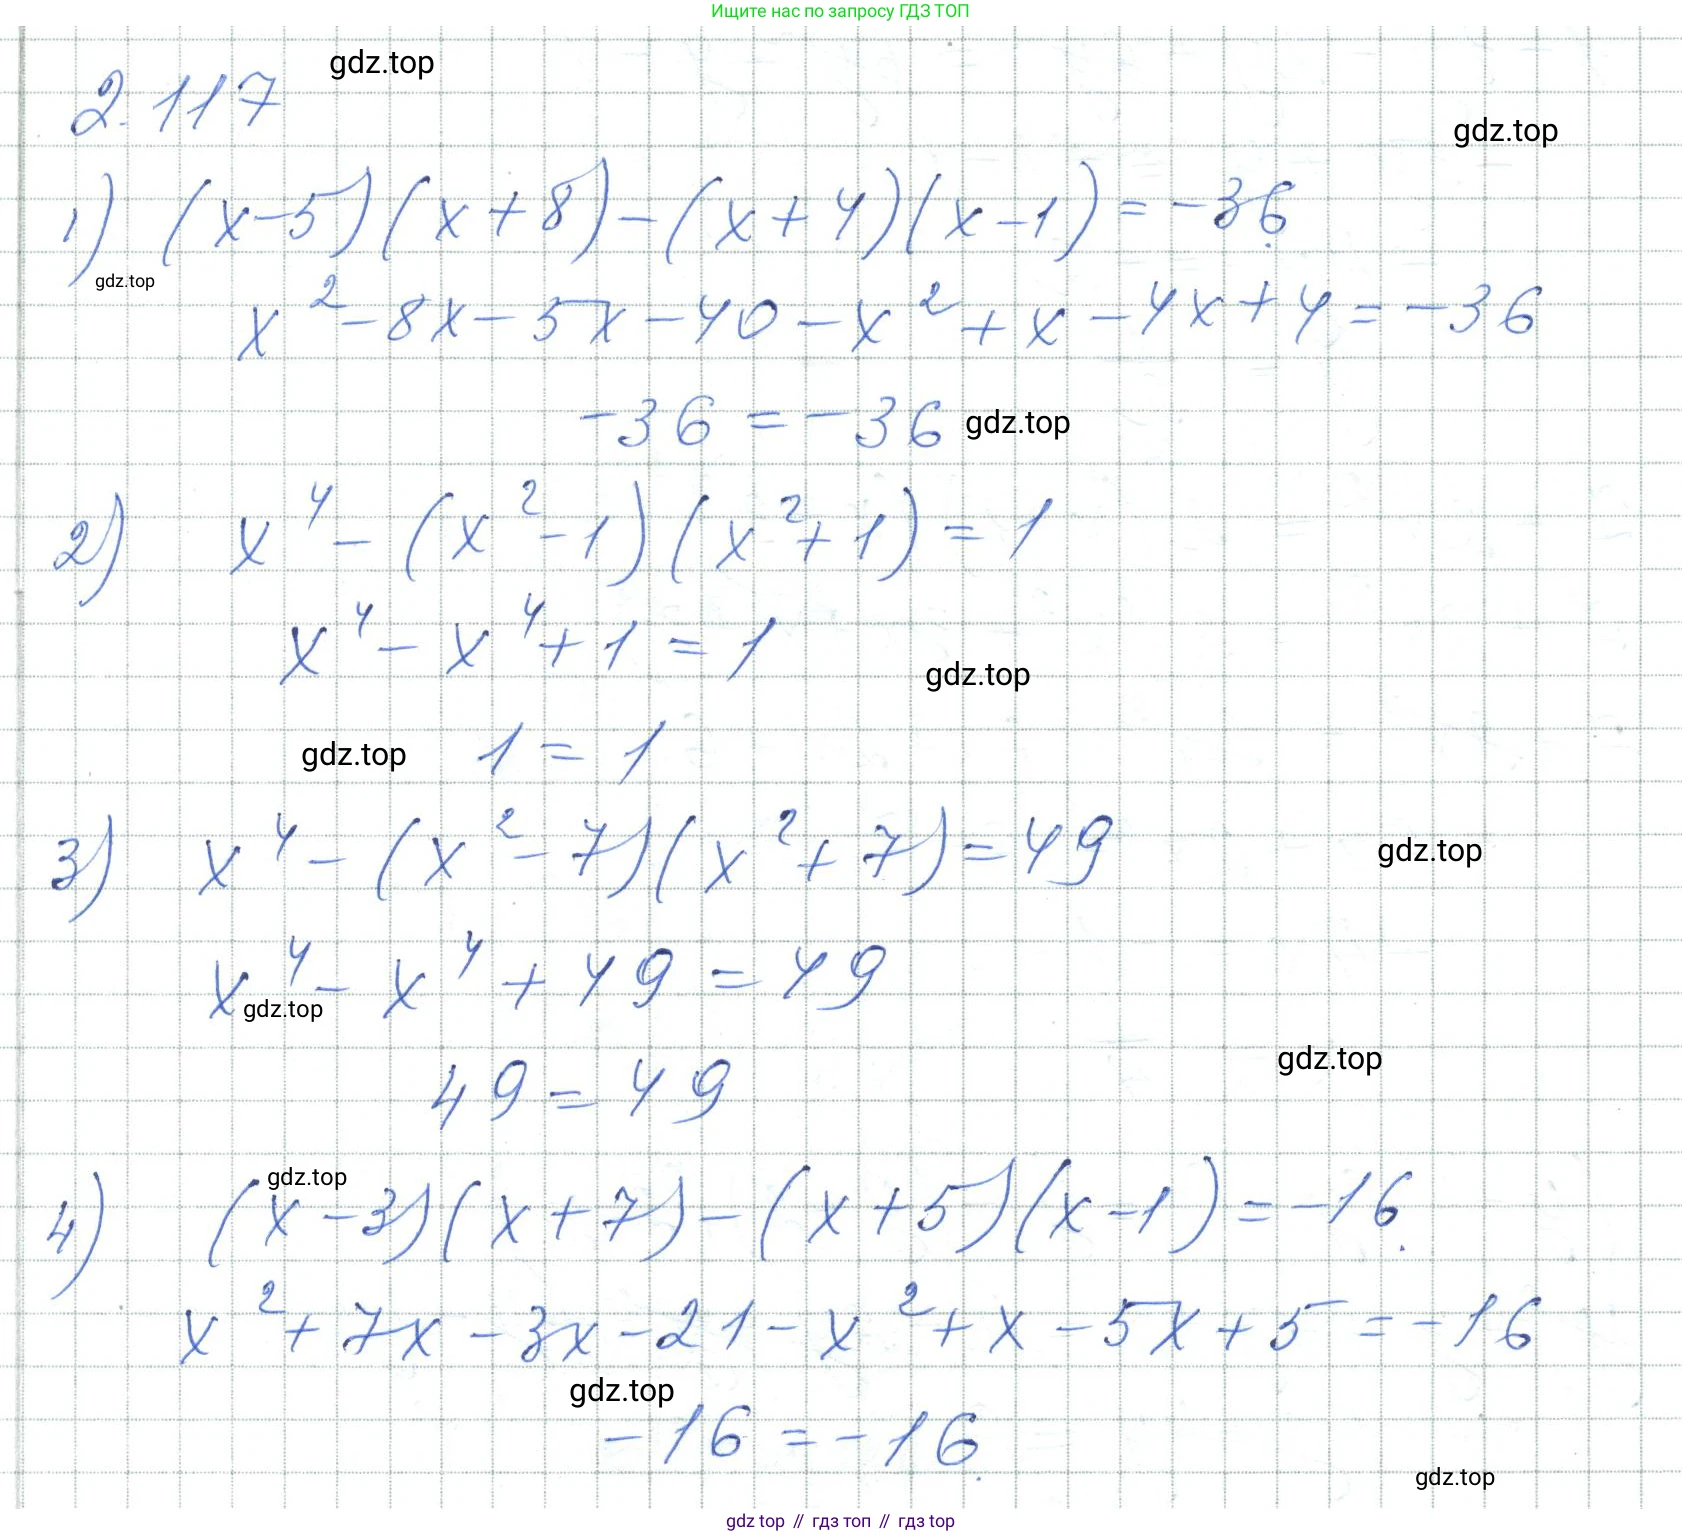 Ищите нас по запросу ГДЗ ТОП
gdz.top
2.117
gdz.top
1) (x-5)(x+8)-(x+4)(x-1)=-36
gdz.top
x²-8x-5x-40-x²+x-4x+4=-36
-36=-36 gdz.top
2) x⁴-(x²-1)(x²+1)=1
x⁴-x⁴+1=1
gdz.top
gdz.top 1=1
3) x⁴-(x²-7)(x²+7)=49
gdz.top
x⁴-x⁴+49=49
gdz.top
gdz.top
49=49
gdz.top
4) (x-3)(x+7)-(x+5)(x-1)=-16.
x²+7x-3x-21-x²+x-5x+5=-16
gdz.top
-16=-16.
gdz.top
gdz top // гдз топ // гдз top